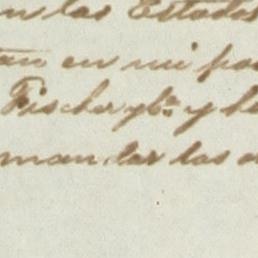 n las Estados
en mi po
Fischer y Cª y
mandar las